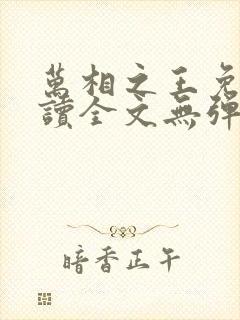 萬相之王免
讀全文無彈
暗香正午